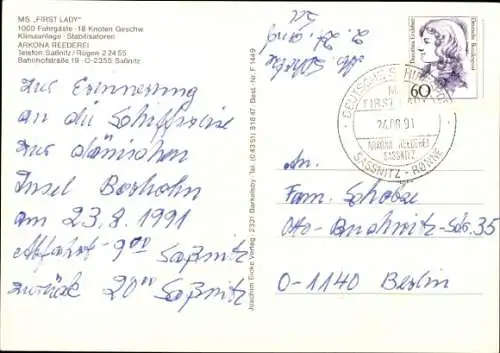 MS. „FIRST LADY"
1000 Fahrgäste · 18 Knoten Geschw.
Klimaanlage · Stabilisatoren
ARKONA REEDEREI
Telefon Saßnitz / Rügen 2 24 55
Bahnhofstraße 19 · O-2355 Saßnitz
Zur Erinnerung
an die Schiffsreise
zur dänischen
Insel Borholm
am 23.8.1991
Abfahrt - 9⁰⁰ Saßnitz
zurück 20⁰⁰ Saßnitz
Joachim Eicke Verlag · 2331 Barkelsby Tel. (0 43 51) 8 18 47 Best.-Nr. F 1449
Deutsche Bundespost
60
DEUTSCHE
FIRST LADY
24.08.91
ARKONA REEDEREI
SASSNITZ
SASSNITZ - RØNNE
An.
Fam.
Otto-Buchwitz-Str. 35
O-1140 Berlin